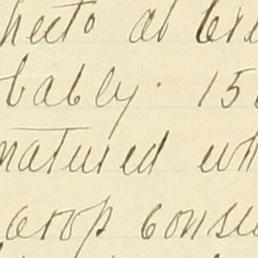 hecto at
bably. 15
natured wh
crop consu